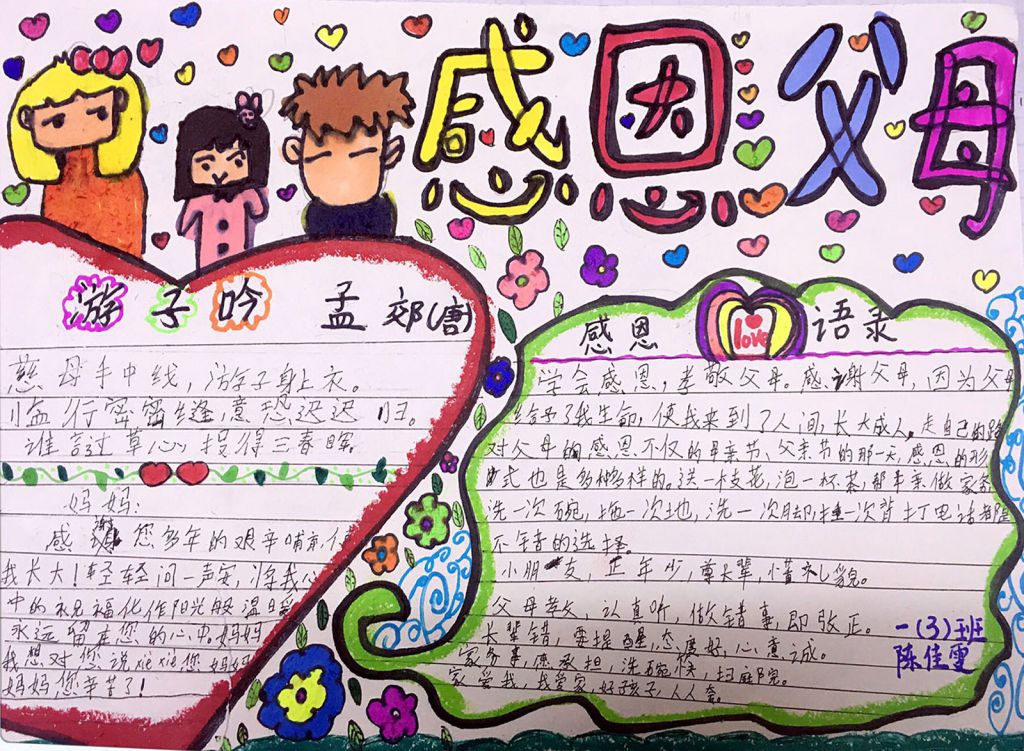 感恩父母
游子吟 孟郊(唐)
慈母手中线，游子身上衣。
临行密密缝，意恐迟迟归。
谁言过草心报得三春晖。
妈妈：
感谢您多年的艰辛哺育,使
我长大！轻轻问一声安，将我心
中的祝福化作阳光般温暖
永远留在您的心中。妈妈
我想对您说xiexie您 妈妈
妈妈您辛苦了！
感恩 love 语录
学会感恩，孝敬父母。感谢父母，因为父母
给予了我生命，使我来到了人间，长大成人，走自己的路
对父母的感恩不仅的母亲节、父亲节的那一天，感恩的形
式也是多种多样的。送一枝花，泡一杯茶，帮 亲做家务
洗一次碗，拖一次地，洗一次脚 一次背 打电话都是
不错的选择。
小朋友，正年少，尊长辈，懂礼貌。
父母教，认真听，做错事，即改正。
长辈错，要提醒，态度好，心意诚。
家务事，愿承担，洗碗筷，扫庭院。
家爱我，我爱家，好孩子，人人夸。
一(3)班
陈佳雪